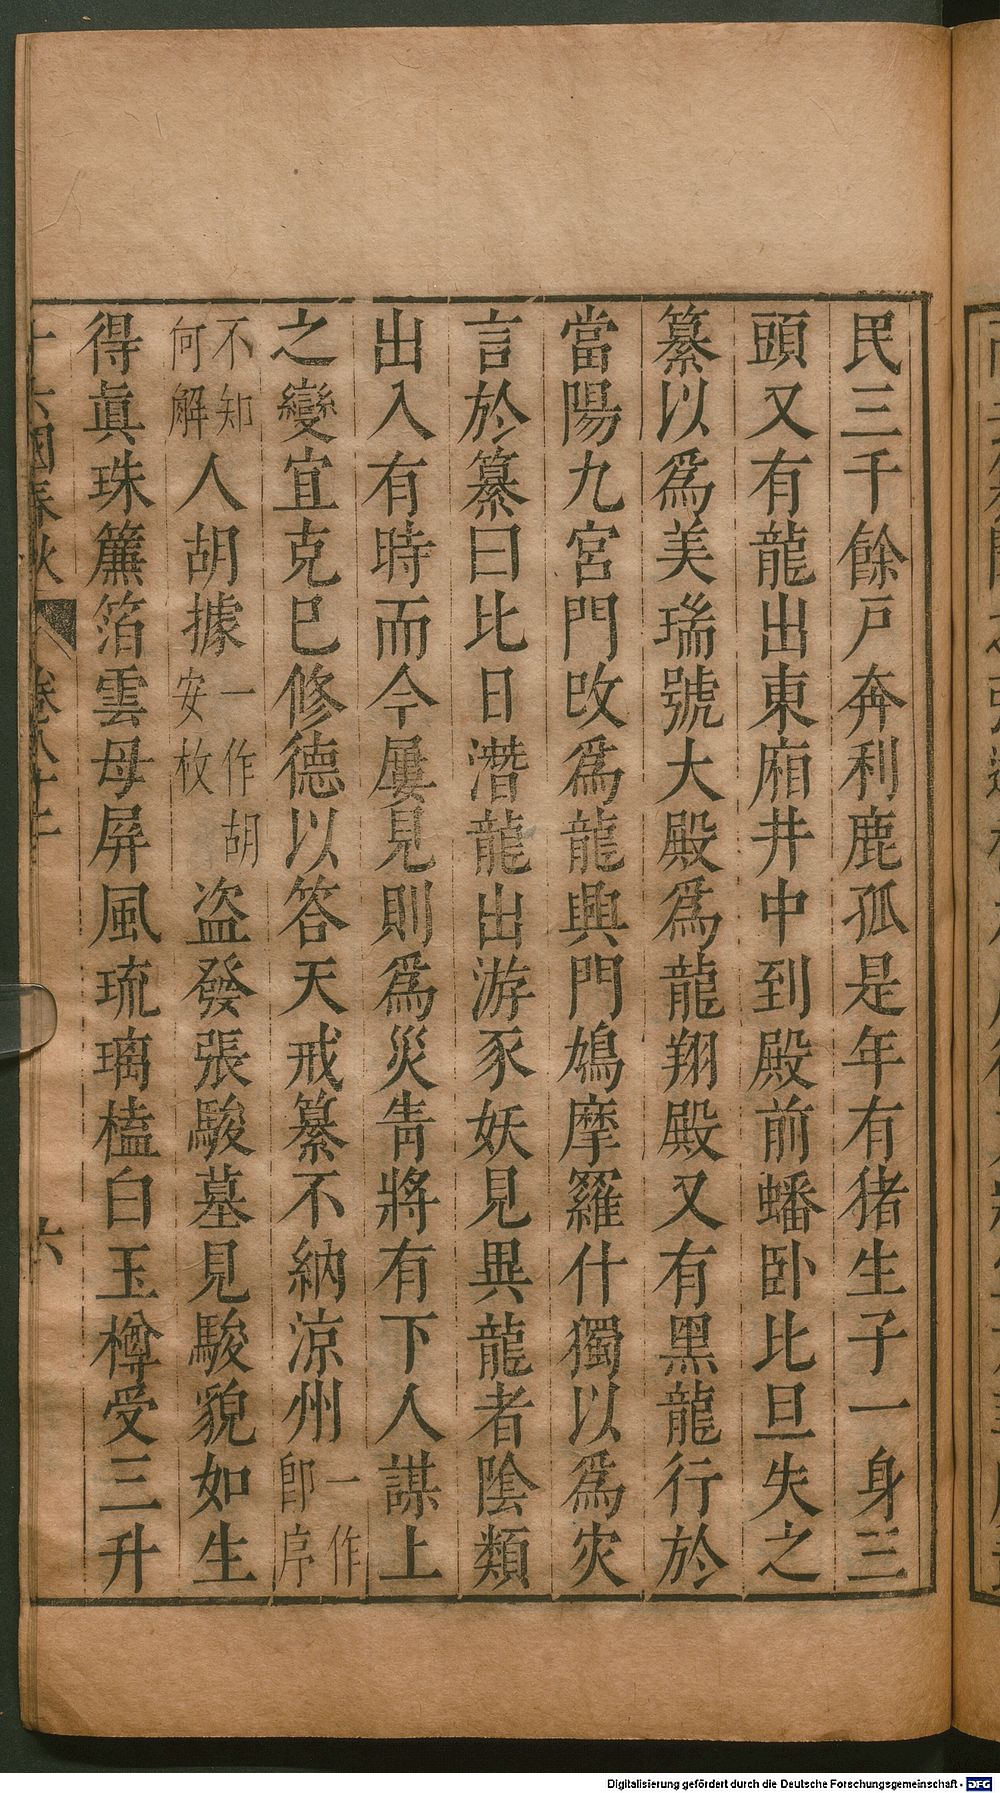 民三千餘戸奔利鹿孤是年有猪生子一身三
頭又有龍出東廂井中到殿前蟠卧比旦失之
纂以爲美瑞號大殿爲龍翔殿又有黑龍行於
當陽九宮門改爲龍興門鳩摩羅什獨以爲灾
言於纂曰比日潛龍出游豕妖見異龍者陰類
出入有時而今屢見則爲災眚將有下人謀上
之變宜克巳修德以答天戒纂不納涼州一作卽序
不知何解人胡據一作胡安枚盜發張駿墓見駿貌如生
得眞珠簾箔雲母屏風琉璃榼白玉樽受三升
十六國春秋 卷八十二 六
Digitalisierung gefördert durch die Deutsche Forschungsgemeinschaft - DFG